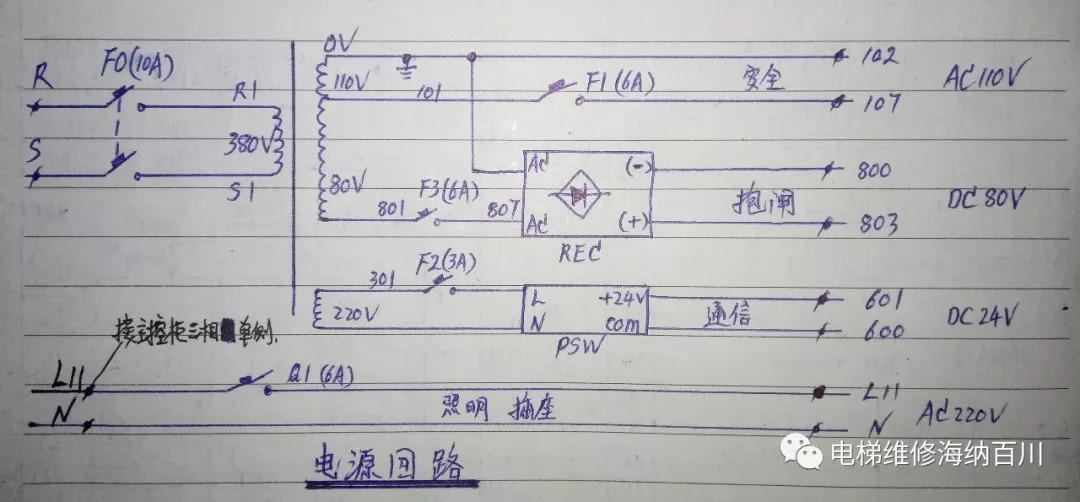 R FO(10A) R1 380V S S1
0V 110V 101 F1(6A) 安全 102 107 AC110V
80V 801 F3(6A) 807 AC AC (-) (+) REC 抱闸 800 803 DC80V
301 F2(3A) 220V L N +24V com PSW 通信 601 600 DC24V
L11 N Q1(6A) 照明 插座 L11 N AC220V
电源回路
电梯维修海纳百川